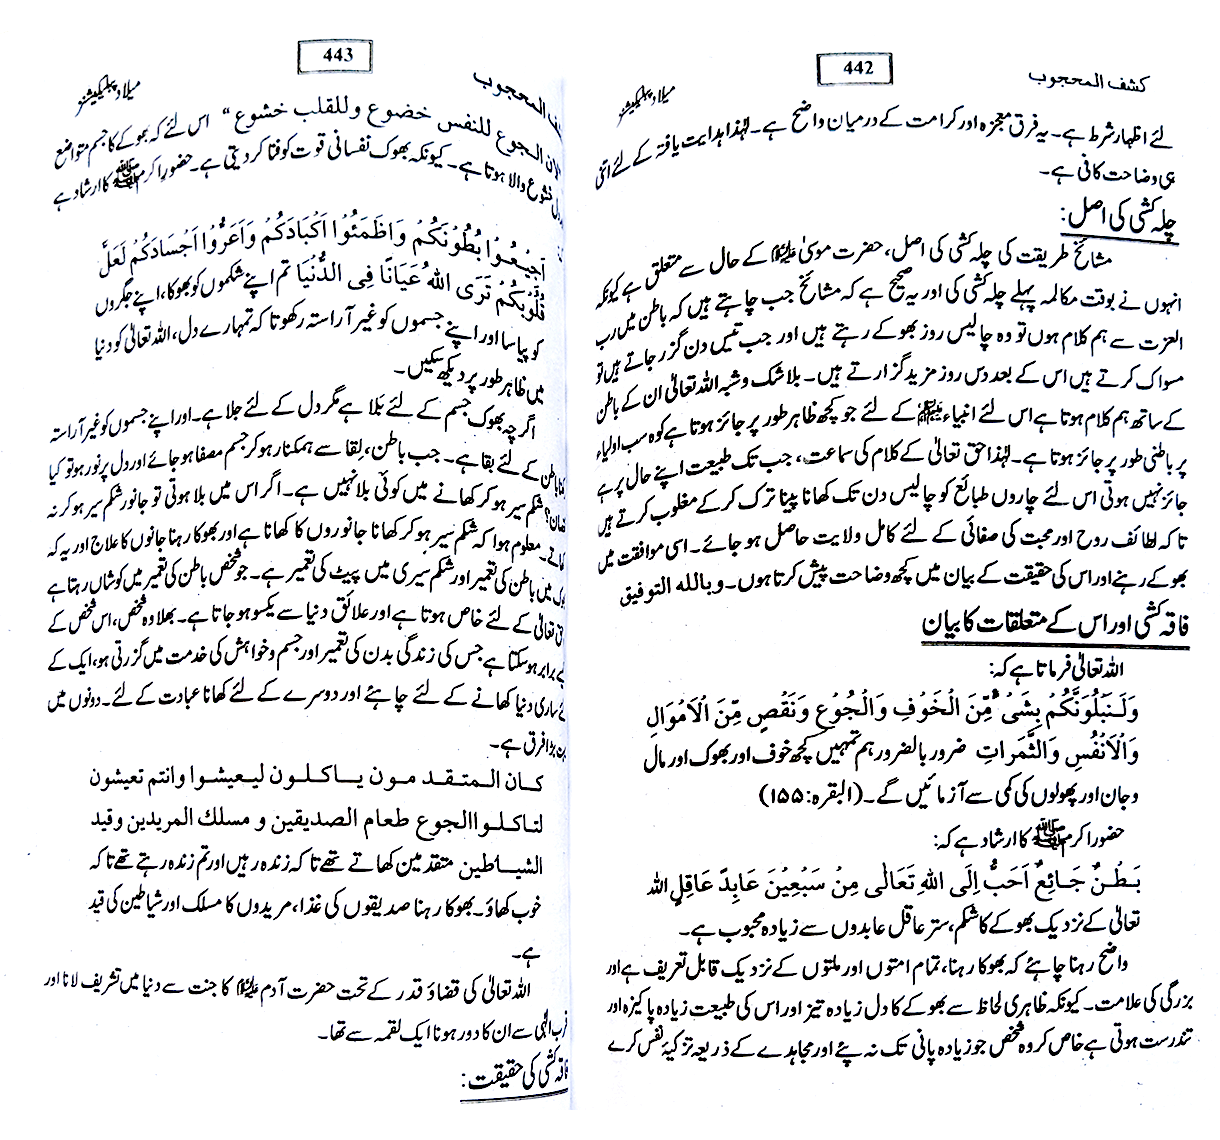 کشف المحجوب
442
میلاد پبلیکیشنز
لئے اظہار شرط ہے۔ یہ فرق معجزہ اور کرامت کے درمیان واضح ہے۔ لہٰذا ہدایت یافتہ کے لئے اتنی
ہی وضاحت کافی ہے۔
چلہ کشی کی اصل:
مشائخ طریقت کی چلہ کشی کی اصل، حضرت موسیٰ علیہ السلام کے حال سے متعلق ہے کیونکہ
انہوں نے بوقت مکالمہ پہلے چلہ کشی کی اور یہ صحیح ہے کہ مشائخ جب چاہتے ہیں کہ باطن میں رب
العزت سے ہم کلام ہوں تو وہ چالیس روز بھوکے رہتے ہیں اور جب تیس دن گزر جاتے ہیں تو
مسواک کرتے ہیں اس کے بعد دس روز مزید گزارتے ہیں۔ بلا شک و شبہ اللہ تعالیٰ ان کے باطن
کے ساتھ ہم کلام ہوتا ہے اس لئے انبیاء علیہم السلام کے لئے جو کچھ ظاہر طور پر جائز ہوتا ہے کہ وہ سب اولیاء
پر باطنی طور پر جائز ہوتا ہے۔ لہٰذا حق تعالیٰ کے کلام کی سماعت، جب تک طبیعت اپنے حال پر ہے
جائز نہیں ہوتی اس لئے چاروں طبائع کو چالیس دن تک کھانا پینا ترک کر کے مغلوب کرتے ہیں
تا کہ لطائف روح اور محبت کی صفائی کے لئے کامل ولایت حاصل ہو جائے۔ اسی موافقت میں
بھوکے رہنے اور اس کی حقیقت کے بیان میں کچھ وضاحت پیش کرتا ہوں۔ وبالله التوفیق
فاقہ کشی اور اس کے متعلقات کا بیان
اللہ تعالیٰ فرماتا ہے کہ:
وَلَنَبْلُوَنَّكُمْ بِشَیْءٍ مِّنَ الْخَوْفِ وَالْجُوْعِ وَنَقْصٍ مِّنَ الْاَمْوَالِ
وَالْاَنْفُسِ وَالثَّمَرَاتِ ضرور بالضرور ہم تمہیں کچھ خوف اور بھوک اور مال
وجان اور پھولوں کی کمی سے آزمائیں گے۔ (البقرہ:۱۵۵)
حضور اکرم ﷺ کا ارشاد ہے کہ:
بَطْنٌ جَائِعٌ اَحَبُّ اِلَی اللّٰهِ تَعَالٰی مِنْ سَبْعِیْنَ عَابِدً عَاقِلٍ اللہ
تعالیٰ کے نزدیک بھوکے کا شکم، ستر عاقل عابدوں سے زیادہ محبوب ہے۔
واضح رہنا چاہئے کہ بھوکا رہنا، تمام امتوں اور ملتوں کے نزدیک قابل تعریف ہے اور
بزرگی کی علامت۔ کیونکہ ظاہری لحاظ سے بھوکے کا دل زیادہ تیز اور اس کی طبیعت زیادہ پاکیزہ اور
تندرست ہوتی ہے خاص کر وہ شخص جو زیادہ پانی تک نہ پئے اور مجاہدے کے ذریعہ تزکیۂ نفس کرے
ف المحجوب
443
میلاد پبلیکیشنز
لان الجوع للنفس خضوع وللقلب خشوع“ اس لئے کہ بھوکے کا جسم متواضع
دل خشوع والا ہوتا ہے۔ کیونکہ بھوک نفسانی قوت کو فنا کر دیتی ہے۔ حضور اکرم ﷺ کا ارشاد ہے
اَجِیْعُوْا بُطُوْنَكُمْ وَاظْمَئُوْا اَكْبَادَكُمْ وَاَعَرُّوْا اَجْسَادَكُمْ لَعَلَّ
قُلُوْبُكُمْ تَرَی اللّٰهُ عَیَانًا فِی الدُّنْیَا تم اپنے شکموں کو بھوکا، اپنے جگروں
کو پیاسا اور اپنے جسموں کو غیر آراستہ رکھو تا کہ تمہارے دل، اللہ تعالیٰ کو دنیا
میں ظاہر طور پر دیکھ سکیں۔
اگر چہ بھوک جسم کے لئے بَلا ہے مگر دل کے لئے جلا ہے۔ اور اپنے جسموں کو غیر آراستہ
رکھنا باطن کے لئے بقا ہے۔ جب باطن، لِقا سے ہمکنار ہو کر جسم مصفا ہو جائے اور دل پر نور ہو تو کیا
نقصان؟ شکم سیر ہو کر کھانے میں کوئی بلا نہیں ہے۔ اگر اس میں بلا ہوتی تو جانور شکم سیر ہو کر نہ
کھاتے۔ معلوم ہوا کہ شکم سیر ہو کر کھانا جانوروں کا کھانا ہے اور بھوکا رہنا جانوں کا علاج اور یہ کہ
بھوک میں باطن کی تعمیر اور شکم سیری میں پیٹ کی تعمیر ہے۔ جو شخص باطن کی تعمیر میں کوشاں رہتا ہے
حق تعالیٰ کے لئے خاص ہوتا ہے اور علائق دنیا سے یکسو ہو جاتا ہے۔ بھلا وہ شخص، اس شخص کے
کیسے برابر ہو سکتا ہے جس کی زندگی بدن کی تعمیر اور جسم و خواہش کی خدمت میں گزرتی ہو، ایک کے
لئے ساری دنیا کھانے کے لئے چاہئے اور دوسرے کے لئے کھانا عبادت کے لئے۔ دونوں میں
بہت بڑا فرق ہے۔
کان المتقدمون یاکلون لیعیشوا وانتم تعیشون
لتاکلوا الجوع طعام الصدیقین و مسلك المریدین وقید
الشیاطین متقدمین کھاتے تھے تا کہ زندہ رہیں اور تم زندہ رہتے تھے تا کہ
خوب کھاؤ۔ بھوکا رہنا صدیقوں کی غذا، مریدوں کا مسلک اور شیاطین کی قید
ہے۔
اللہ تعالیٰ کی قضاؤ قدر کے تحت حضرت آدم علیہ السلام کا جنت سے دنیا میں تشریف لانا اور
قرب الٰہی سے ان کا دور ہونا ایک لقمہ سے تھا۔
فاقہ کشی کی حقیقت: